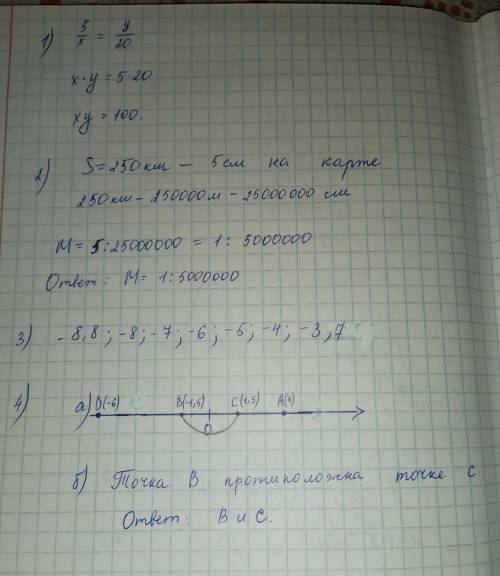 1) 5/x = y/20
x·y = 5 20
xy = 100.
2) S = 250 км – 5 см на карте
250 км – 250000 м – 25000000 см
М = 5 : 25000000 = 1 : 5000000
Ответ: М = 1 : 5000000
3) -8,8 ; -8 ; -7 ; -6 ; -5 ; -4 ; -3,7
4) а) D(-6) B(-1,5) C(1,5) A(4)
0
б) Точка В протиположна точке С
Ответ: В и С.